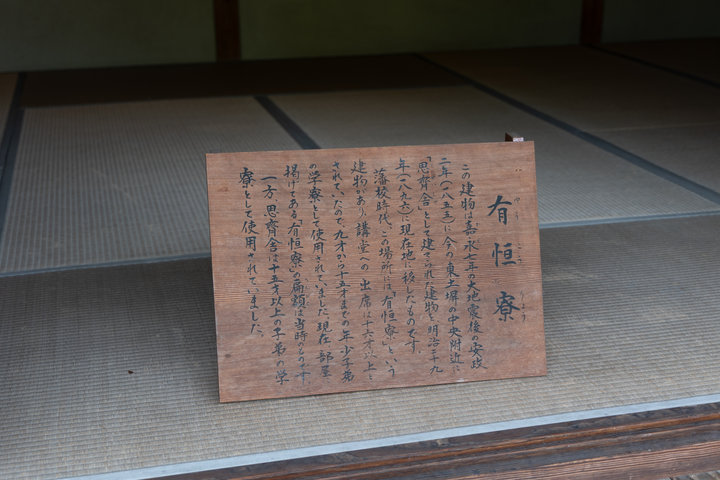 有恒寮
この建物は嘉永七年の大地震後の安政
二年(一八五五)に今の東土塀の中央附近に
「思齊舎」として建てられた建物を明治二十九
年(一八九六)に現在地に移したものです。
藩校時代、この場所には「有恒寮」という
建物があり講堂への出席は十六才以上と
されていたので、九才から十五才までの年少子弟
の学寮として使用されていました。現在、部屋に
掲げてある「有恒寮」の扁額は当時のものです。
一方、思齊舎は十五才以上の子弟の学
寮として使用されていました。